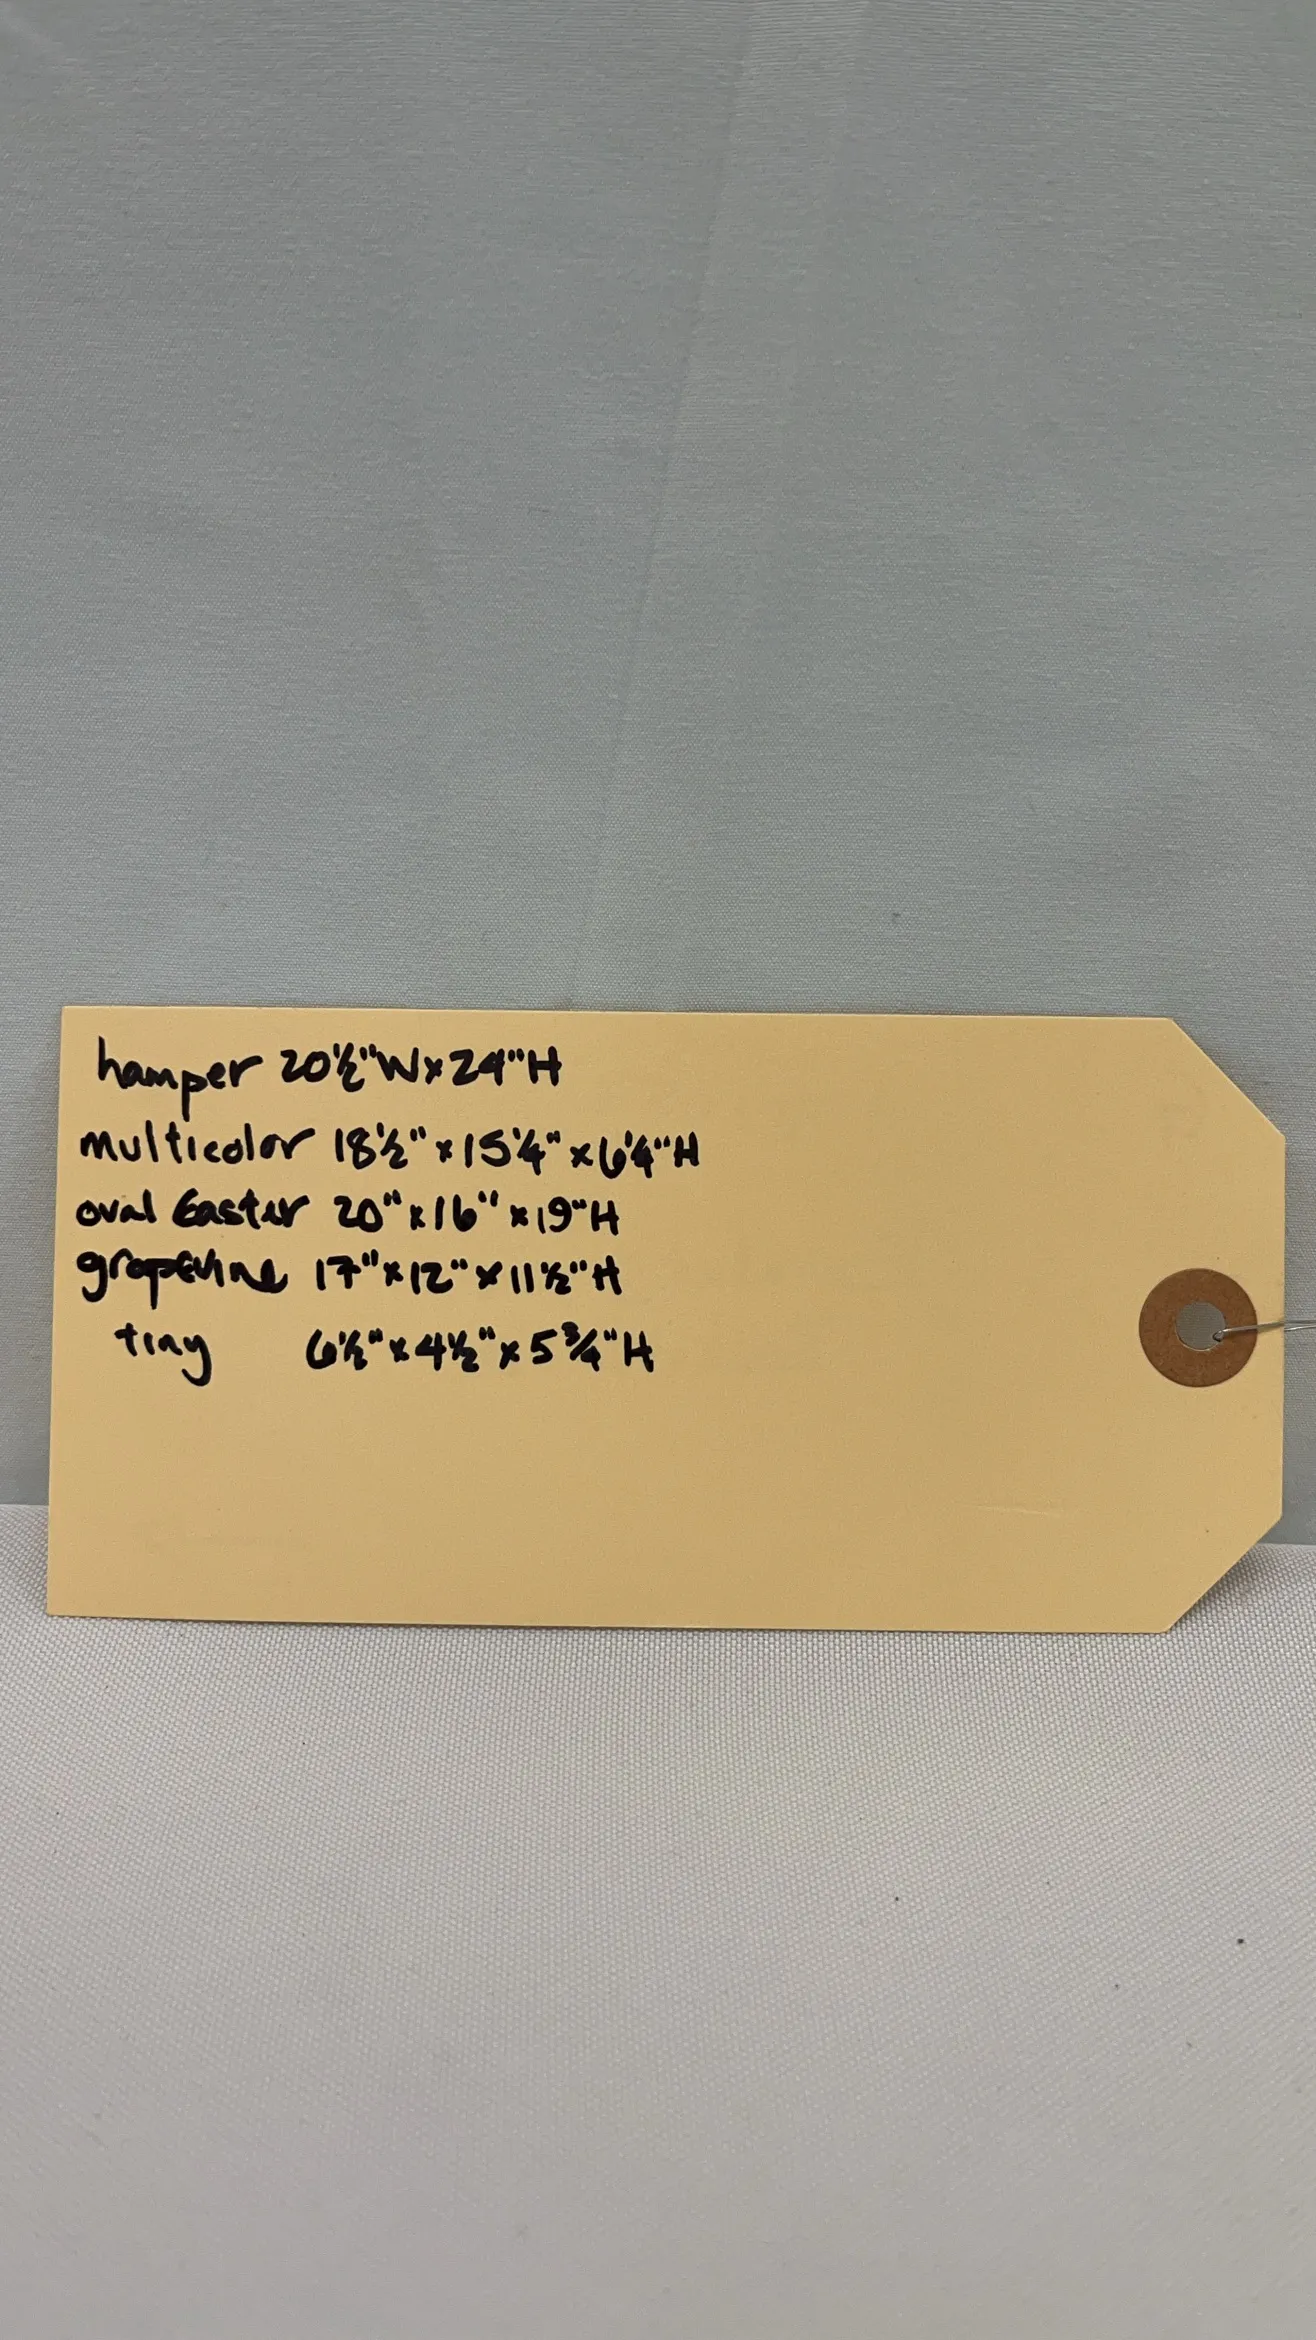 hamper 20½"W x 24"H
multicolor 18½" x 15¼" x 6¼"H
oval Easter 20" x 16" x 19"H
grapevine 17" x 12" x 11½"H
tiny 6½" x 4½" x 5¾"H